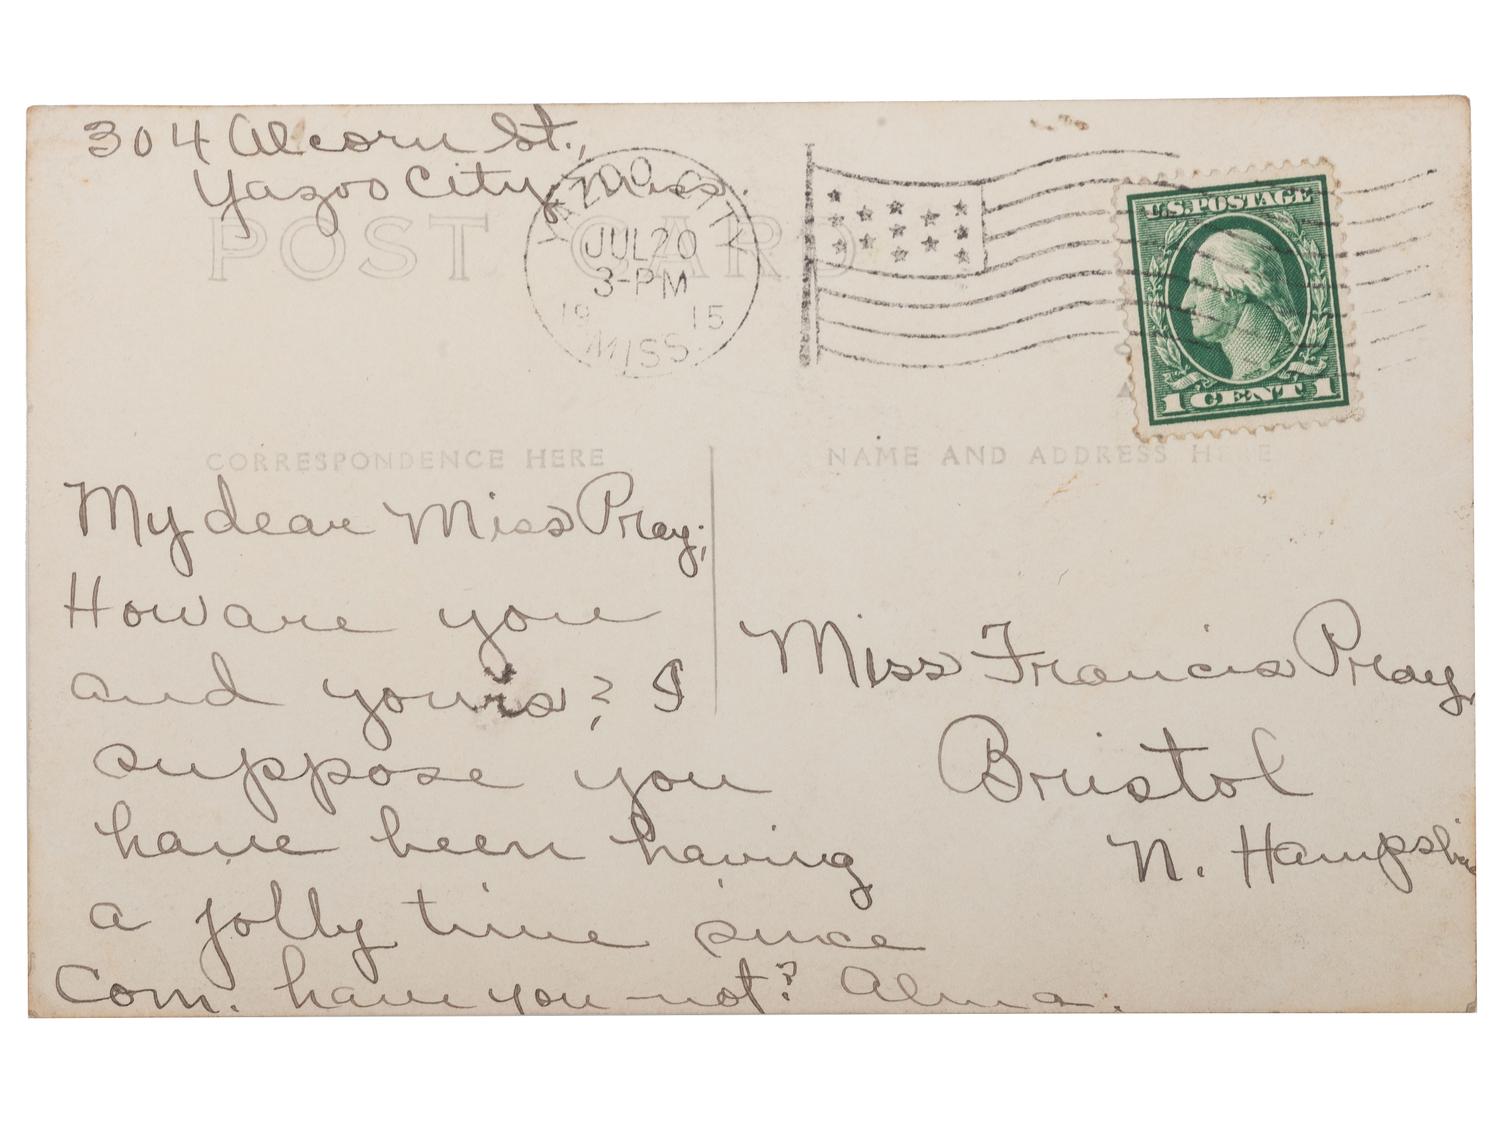 304 Alcorn St.,
Yazoo City, Miss.
POST CARD
YAZOO CITY
JUL 20
3-PM
19 15
MISS.
U.S. POSTAGE
1 CENT 1
CORRESPONDENCE HERE
NAME AND ADDRESS HERE
My dear Miss Pray;
How are you
and yours? I
suppose you
have been having
a jolly time since
Com. have you not? Alma.
Miss Francis Pray,
Bristol
N. Hampshire